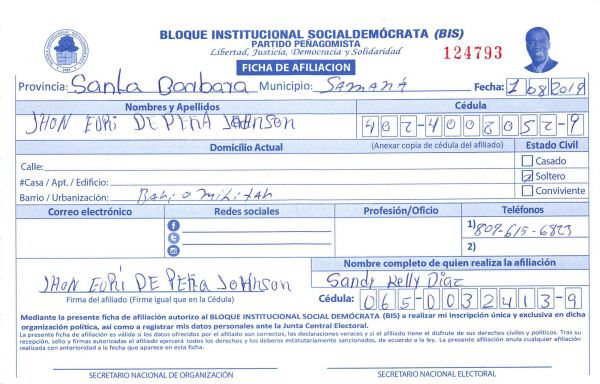 BLOQUE INSTITUCIONAL SOCIALDEMÓCRATA (BIS)
PARTIDO PEÑAGOMISTA
Libertad, Justicia, Democracia y Solidaridad
124793
FICHA DE AFILIACION
Provincia: Santa Barbara Municipio: SAMANÁ Fecha: 1 08 2019
Nombres y Apellidos Cédula
JHON EURI DE PEÑA JOHNSON 402-4008052-9
Domicilio Actual (Anexar copia de cédula del afiliado) Estado Civil
Calle: Casado
#Casa / Apt. / Edificio: Soltero
Barrio / Urbanización: Conviviente
Correo electrónico Redes sociales Profesión/Oficio Teléfonos
1) 809-615-6823
2)
Nombre completo de quien realiza la afiliación
JHON EURI DE PEÑA JOHNSON Sandy Kelly Diaz
Firma del afiliado (Firme igual que en la Cédula) Cédula: 065-0032413-9
Mediante la presente ficha de afiliación autorizo al BLOQUE INSTITUCIONAL SOCIAL DEMÓCRATA (BIS) a realizar mi inscripción única y exclusiva en dicha
organización política, así como a registrar mis datos personales ante la Junta Central Electoral.
La presente ficha de afiliación es válida si los datos ofrecidos por el afiliado son correctos, las declaraciones veraces y si el afiliado tiene el disfrute de sus derechos civiles y políticos. Tras su
recepción, sello y firmas autorizadas el afiliado ejercerá todos los derechos y los deberes estatutariamente sancionados, de acuerdo a la ley. La presente afiliación anula cualquier afiliación
realizada con anterioridad a la fecha que aparece en esta ficha.
SECRETARIO NACIONAL DE ORGANIZACIÓN SECRETARIO NACIONAL ELECTORAL